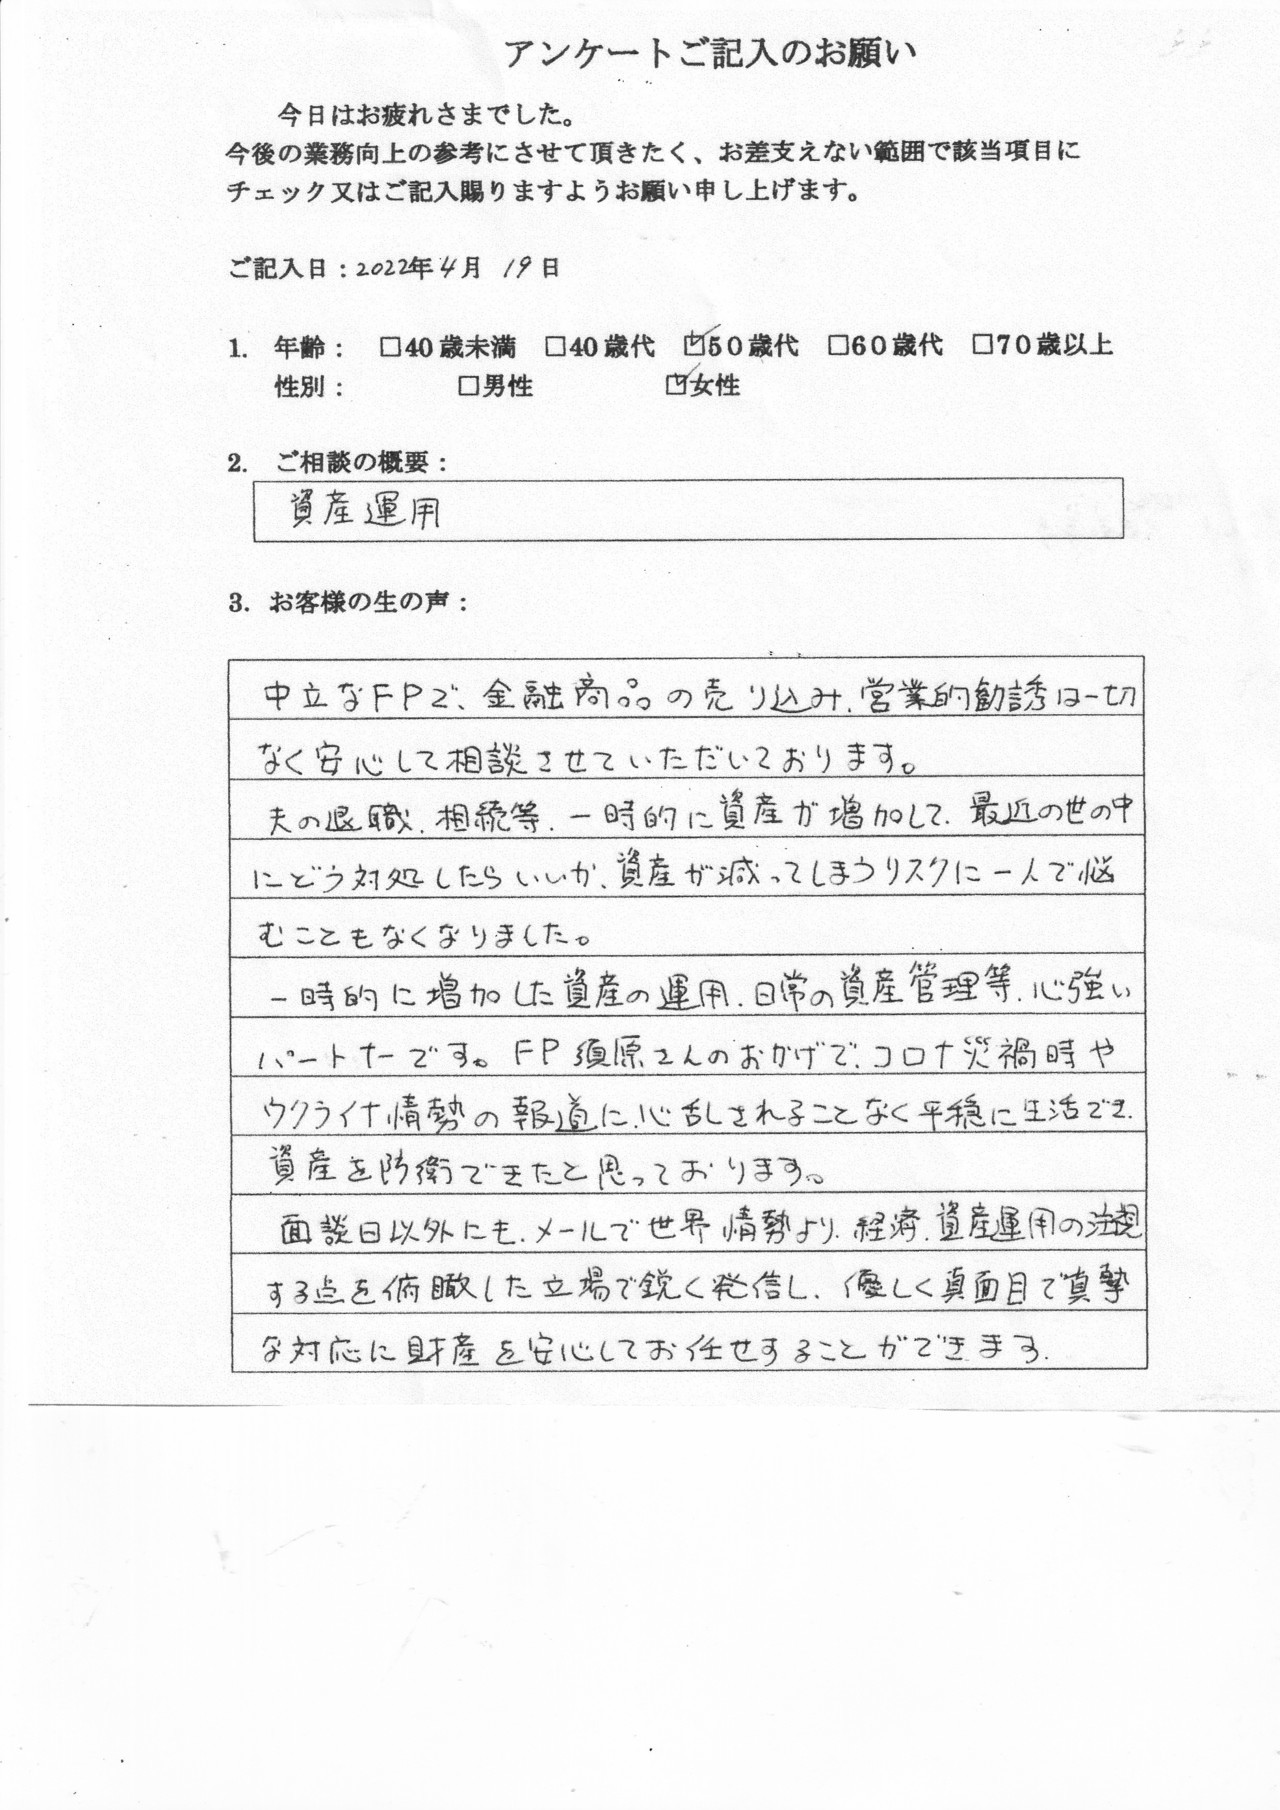 アンケートご記入のお願い
今日はお疲れさまでした。
今後の業務向上の参考にさせて頂きたく、お差支えない範囲で該当項目に
チェック又はご記入賜りますようお願い申し上げます。
ご記入日：2022年4月 19日
1. 年齢： □40歳未満 □40歳代 ☑50歳代 □60歳代 □70歳以上
性別： □男性 ☑女性
2. ご相談の概要：
資産運用
3. お客様の生の声：
中立なFPで、金融商品の売り込み、営業的勧誘は一切
なく安心して相談させていただいております。
夫の退職、相続等、一時的に資産が増加して、最近の世の中
にどう対処したらいいか、資産が減ってしまうリスクに一人で悩
むこともなくなりました。
一時的に増加した資産の運用、日常の資産管理等、心強い
パートナーです。FP須原さんのおかげで、コロナ災禍時や
ウクライナ情勢の報道に、心乱されることなく平穏に生活でき、
資産を防衛できたと思っております。
面談日以外にも、メールで世界情勢より、経済、資産運用の注視
する点を俯瞰した立場で鋭く発信し、優しく真面目で真摯
な対応に財産を安心してお任せすることができます。